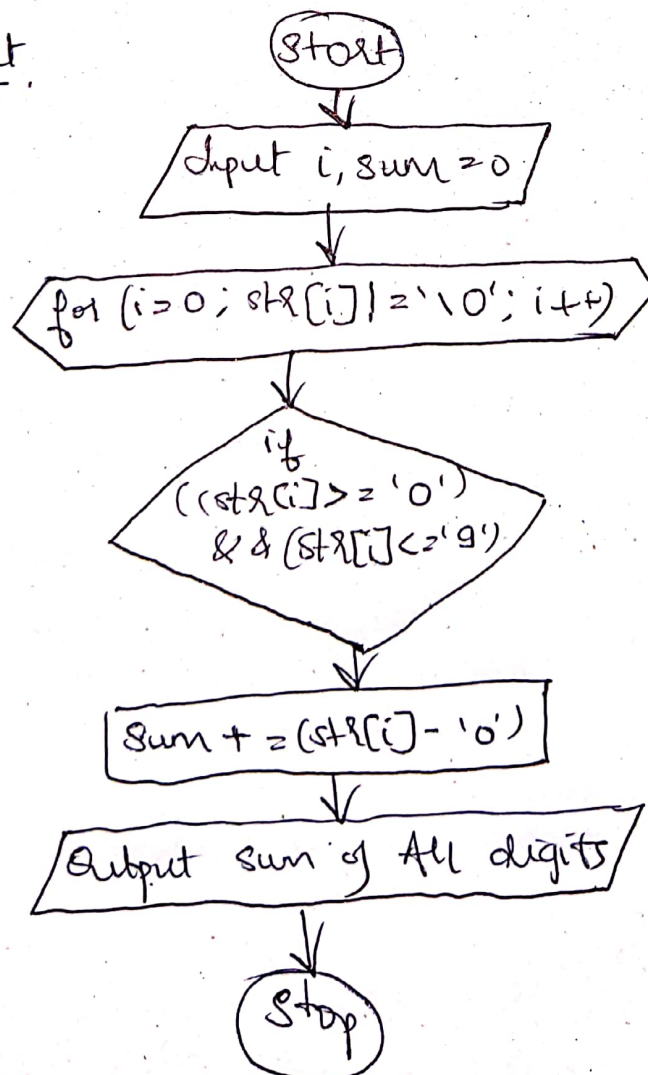 t
Start
Input i, sum = 0
for (i=0; str[i] != '\0'; i++)
if
((str[i] >= '0')
&& (str[i] <= '9')
Sum + = (str[i] - '0')
Output sum of All digits
Stop